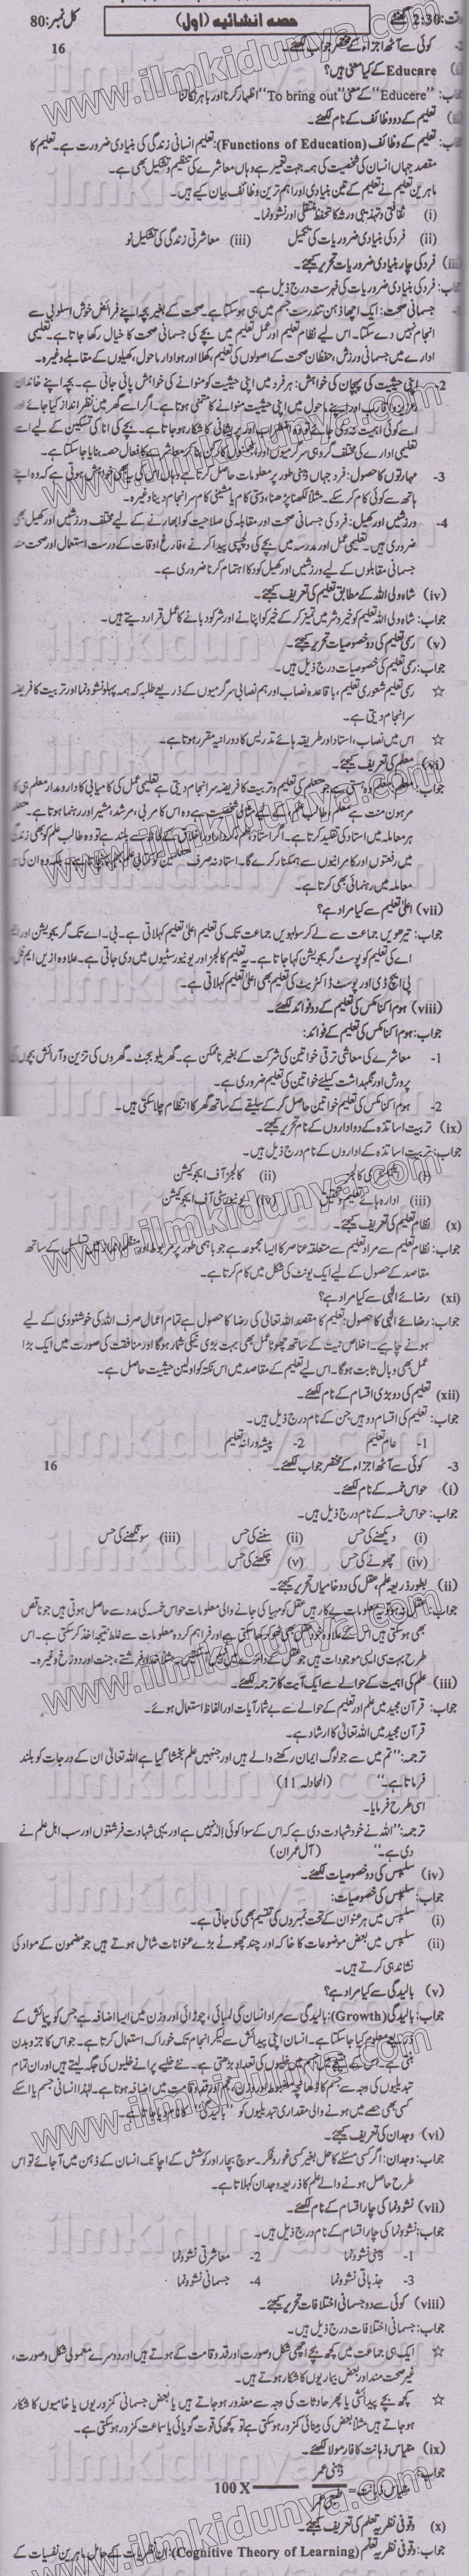 وقت: 2:30 گھنٹے حصہ انشائیہ (اول) کل نمبر: 80
2- کوئی سے آٹھ اجزاء کے مختصر جواب لکھئے۔ 16
(i) Educare کے کیا معنی ہیں؟
جواب: "Educere" کے معنی "To bring out" اظہار کرنا اور باہر نکالنا
(ii) تعلیم کے دو وظائف کے نام لکھئے۔
جواب: تعلیم کے وظائف (Functions of Education): تعلیم انسانی زندگی کی بنیادی ضرورت ہے۔ تعلیم کا
مقصد جہاں انسان کی شخصیت کی ہمہ جہت تعمیر ہے وہاں معاشرے کی تنظیم و تشکیل بھی ہے۔
ماہرین تعلیم نے تعلیم کے تین بنیادی اور اہم ترین وظائف بیان کیے ہیں۔
(i) ثقافتی و تہذیبی ورثہ کا تحفظ منتقلی اور نشوونما۔
(ii) فرد کی بنیادی ضروریات کی تکمیل (iii) معاشرتی زندگی کی تشکیل نو
(iii) فرد کی چار بنیادی ضروریات تحریر کیجئے۔
جواب: فرد کی بنیادی ضروریات کی فہرست درج ذیل ہے۔
1- جسمانی صحت: ایک اچھا ذہن تندرست جسم میں ہی ہو سکتا ہے۔ صحت کے بغیر بچہ اپنے فرائض خوش اسلوبی سے
انجام نہیں دے سکتا۔ اس لیے نظام تعلیم اور عمل تعلیم میں بچے کی جسمانی صحت کا خیال رکھا جاتا ہے۔ تعلیمی
ادارے میں جسمانی ورزش، حفظان صحت کے اصولوں کی تعلیم، کھلا اور ہوادار ماحول، کھیلوں کے مقابلے وغیرہ۔
2- اپنی حیثیت کی پہچان کی خواہش: ہر فرد میں اپنی حیثیت کو منوانے کی خواہش پائی جاتی ہے۔ بچہ اپنے خاندان
عزیز و اقارب اور اپنے ماحول میں اپنی حیثیت منوانے کا متمنی ہوتا ہے۔ اگر اسے گھر میں نظر انداز کیا جائے اور
اسے کوئی اہمیت نہ دی جائے تو وہ اضطراب اور پریشانی کا شکار ہو جاتا ہے۔ بچے کی انا کی تسکین کے لیے اسے
تعلیمی ادارے کی مختلف گروہی سرگرمیوں اور انجمنوں کا رکن بنا کر معاشرے کا فعال حصہ بنایا جا سکتا ہے۔
3- مہارتوں کا حصول: فرد جہاں ذہنی طور پر معلومات حاصل کرتا ہے وہاں اس کی یہ بھی خواہش ہوتی ہے کہ وہ اپنے
ہاتھ سے کوئی کام کر سکے۔ مثلاً لکھنا پڑھنا، دستی کام یا مشینی کام سرانجام دینا وغیرہ۔
4- ورزشیں اور کھیل: فرد کی جسمانی صحت اور مقابلہ کی صلاحیت کو ابھارنے کے لیے مختلف ورزشیں اور کھیل بھی
ضروری ہیں۔ تعلیمی عمل اور مدرسہ میں بچے کی دلچسپی پیدا کرنے، فارغ اوقات کے درست استعمال اور صحت مند
جسمانی مقابلوں کے لیے ورزشیں اور کھیل کود کا اہتمام کرنا ضروری ہے۔
(iv) شاہ ولی اللہ کے مطابق تعلیم کی تعریف کیجئے۔
جواب: شاہ ولی اللہ تعلیم کو خیر و شر میں تمیز کر کے خیر کو اپنانے اور شر کو دبانے کا عمل قرار دیتے ہیں۔
(v) رسمی تعلیم کی دو خصوصیات تحریر کیجئے۔
جواب: رسمی تعلیم کی خصوصیات درج ذیل ہیں۔
☆ رسمی تعلیم شعوری تعلیم، باقاعدہ نصاب اور ہم نصابی سرگرمیوں کے ذریعے طلبہ کہ ہمہ پہلو نشوونما اور تربیت کا فریضہ
سرانجام دیتی ہے۔
☆ اس میں نصاب، استاد اور طریقہ ہائے تدریس کا دورانیہ مقرر ہوتا ہے۔
(vi) معلم کی تعریف کیجئے۔
جواب: معلم وہ ہستی ہے جو متعلم کی تعلیم و تربیت کا فریضہ سرانجام دیتی ہے تعلیمی عمل کی کامیابی کا دارومدار معلم ہی کا
مرہون منت ہے طالب علم کے لیے مثالی شخصیت ہے وہ اس کا مربی، مرشد، مشیر اور رہنما ہوتا ہے۔ متعلم
ہر معاملہ میں استاد کی تقلید کرتا ہے۔ اگر استاد، علم، کردار اور اخلاق کے لحاظ سے بلند ہے تو وہ طالب علم کو بھی زندگی
میں رفعتوں اور کامرانیوں سے ہمکنار کرے گا۔ استاد نہ صرف بلکہ وہ ان کی ہر
معاملہ میں رہنمائی بھی کرتا ہے۔
(vii) اعلیٰ تعلیم سے کیا مراد ہے؟
جواب: تیرھویں جماعت سے لے کر سولہویں جماعت تک کی تعلیم اعلیٰ تعلیم کہلاتی ہے۔ بی۔ اے تک گریجویشن اور ایم
اے کی تعلیم کو پوسٹ گریجویشن کہا جاتا ہے۔ یہ تعلیم کالجز اور یونیورسٹیوں میں دی جاتی ہے۔ علاوہ ازیں ایم فل
پی ایچ ڈی اور پوسٹ ڈاکٹریٹ کی تعلیم بھی اعلیٰ تعلیم کہلاتی ہے۔
(viii) ہوم اکنامکس کی تعلیم کے دو فوائد لکھئے۔
جواب: ہوم اکنامکس کی تعلیم کے فوائد:
1- معاشرے کی معاشی ترقی خواتین کی شرکت کے بغیر ناممکن ہے۔ گھریلو بجٹ۔ گھروں کی تزین و آرائش بچوں کی
پرورش اور نگہداشت کیلئے خواتین کی تعلیم ضروری ہے۔
2- ہوم اکنامکس کی تعلیم خواتین حاصل کر کے سلیقے کے ساتھ گھر کا انتظام چلا سکتی ہیں۔
(ix) تربیت اساتذہ کے دو اداروں کے نام تحریر کیجئے۔
جواب: تربیت اساتذہ کے اداروں کے نام درج ذیل ہیں۔
(i) ایلیمنٹری کالجز (ii) کالجز آف ایجوکیشن
(iii) ادارہ ہائے تعلیم و تحقیق (iv) یونیورسٹی آف ایجوکیشن
(x) نظام تعلیم کی تعریف کیجئے۔
جواب: نظام تعلیم سے مراد تعلیم سے متعلقہ عناصر کا ایسا مجموعہ ہے جو باہمی طور پر مربوط اور منظم انداز میں تسلسل کے ساتھ
مقاصد کے حصول کے لیے ایک یونٹ کی شکل میں کام کرتا ہے۔
(xi) رضائے الٰہی سے کیا مراد ہے؟
جواب: رضائے الٰہی کا حصول: تعلیم کا مقصد اللہ تعالیٰ کی رضا کا حصول ہے تمام اعمال صرف اللہ کی خوشنودی کے لیے
ہونے چاہیے۔ اخلاص نیت کے ساتھ چھوٹا عمل بھی بہت بڑی نیکی شمار ہوگا اور منافقت کی صورت میں ایک بڑا
عمل بھی وبال ثابت ہوگا۔ اس لیے تعلیم کے مقاصد میں اس نکتہ کو اولین حیثیت حاصل ہے۔
(xii) تعلیم کی دو بڑی اقسام کے نام لکھئے۔
جواب: تعلیم کی اقسام دو ہیں جن کے نام درج ذیل ہیں۔
1- عام تعلیم 2- پیشہ ورانہ تعلیم
3- کوئی سے آٹھ اجزاء کے مختصر جواب لکھئے۔ 16
(i) حواس خمسہ کے نام لکھئے۔
جواب: حواس خمسہ کے نام درج ذیل ہیں۔
(i) دیکھنے کی حس (ii) سننے کی حس (iii) سونگھنے کی حس
(iv) چھونے کی حس (v) چکھنے کی حس
(ii) بطور ذریعہ علم، عقل کی دو خامیاں تحریر کیجئے۔
جواب: عقل نہ ہو تو معلومات بے کار ہیں عقل کو مہیا کی جانے والی معلومات حواس خمسہ کی مدد سے حاصل ہوتی ہیں جو ناقص
بھی ہو سکتی ہیں اس کے علاوہ خود عقل بھی ٹھوکر کھا سکتی ہے اور فراہم کردہ معلومات سے غلط نتیجہ اخذ کر سکتی ہے۔ اس
طرح بہت سی ایسی موجودات ہیں جو عقل کے دائرے میں نہیں آ سکتیں۔ مثلاً خدا، فرشتے، جنت اور دوزخ وغیرہ۔
(iii) علم کی اہمیت کے حوالے سے ایک آیت کا ترجمہ لکھئے۔
جواب: قرآن مجید میں علم اور تعلیم کے حوالے سے بے شمار آیات اور الفاظ استعمال ہوئے۔
قرآن مجید میں اللہ تعالیٰ کا ارشاد ہے۔
ترجمہ: "تم میں سے جو لوگ ایمان رکھنے والے ہیں اور جنہیں علم بخشا گیا ہے اللہ تعالیٰ ان کے درجات کو بلند
فرماتا ہے۔" (المجادلہ 11)
اسی طرح فرمایا۔
ترجمہ: "اللہ نے خود شہادت دی ہے کہ اس کے سوا کوئی الٰہ نہیں ہے اور یہی شہادت فرشتوں اور سب اہل علم نے
دی ہے۔" (آل عمران)
(iv) سلیبس کی دو خصوصیات لکھئے۔
جواب: سلیبس کی خصوصیات:
(i) سلیبس میں ہر عنوان کے تحت نمبروں کی تقسیم بھی کی جاتی ہے۔
(ii) سلیبس میں بعض موضوعات کا خاکہ اور چند چھوٹے بڑے عنوانات شامل ہوتے ہیں جو مضمون کے مواد کی
نشاندہی کرتے ہیں۔
(v) بالیدگی سے کیا مراد ہے؟
جواب: بالیدگی (Growth): بالیدگی سے مراد انسان کی لمبائی، چوڑائی اور وزن میں ایسا اضافہ ہے جس کو پیمائش کے
ذریعے معلوم کیا جا سکتا ہے۔ انسان اپنی پیدائش سے لیکر انجام تک خوراک استعمال کرتا ہے۔ جو اس کا جزو بدن
بنتی ہے۔ اس کے نتیجے میں جسم میں خلیوں کی تعداد بڑھتی ہے۔ نئے خلیے پرانے خلیوں کی جگہ لیتے ہیں اور ان تمام
تبدیلیوں کی وجہ سے جسم کا ڈھانچہ مضبوط اور وزن، حجم اور قد و قامت میں اضافہ ہوتا ہے۔ لہٰذا انسانی جسم یا اسکے
کسی بھی حصے میں ہونے والی مقداری تبدیلیوں کو "بالیدگی" کا نام دیا جاتا ہے۔
(vi) وجدان کی تعریف کیجئے۔
جواب: وجدان: اگر کسی مسئلے کا حل بغیر کسی غور و فکر۔ سوچ بچار اور کوشش کے اچانک انسان کے ذہن میں آ جائے تو اس
طرح حاصل ہونے والے علم کا ذریعہ وجدان کہلاتا ہے۔
(vii) نشوونما کی چار اقسام کے نام لکھئے۔
جواب: نشوونما کی چار اقسام کے نام درج ذیل ہیں۔
1- ذہنی نشوونما 2- معاشرتی نشوونما
3- جذباتی نشوونما 4- جسمانی نشوونما
(viii) کوئی سے دو جسمانی اختلافات تحریر کیجئے۔
جواب: جسمانی اختلافات درج ذیل ہیں۔
☆ ایک ہی جماعت میں کچھ بچے اچھی شکل و صورت اور قد و قامت کے ہوتے ہیں اور دوسرے معمولی شکل و صورت،
غیر صحت مند اور بعض بیماریوں کا شکار ہوتے ہیں۔
☆ کچھ بچے پیدائشی یا پھر حادثات کی وجہ سے معذور ہو جاتے ہیں یا بعض جسمانی کمزوریوں یا خامیوں کا شکار
ہو جاتے ہیں مثلاً بعض کی بینائی کمزور ہو سکتی ہے تو کچھ کی قوت گویائی یا سماعت کمزور ہو سکتی ہے۔
(ix) مقیاس ذہانت کا فارمولا لکھئے۔
جواب: مقیاس ذہانت = ذہنی عمر / طبعی عمر X 100
(x) وقوفی نظریہ تعلم کی تعریف کیجئے۔
جواب: وقوفی نظریہ تعلم (Cognitive Theory of Learning): ان نظریات کے حامل ماہرین نفسیات کے